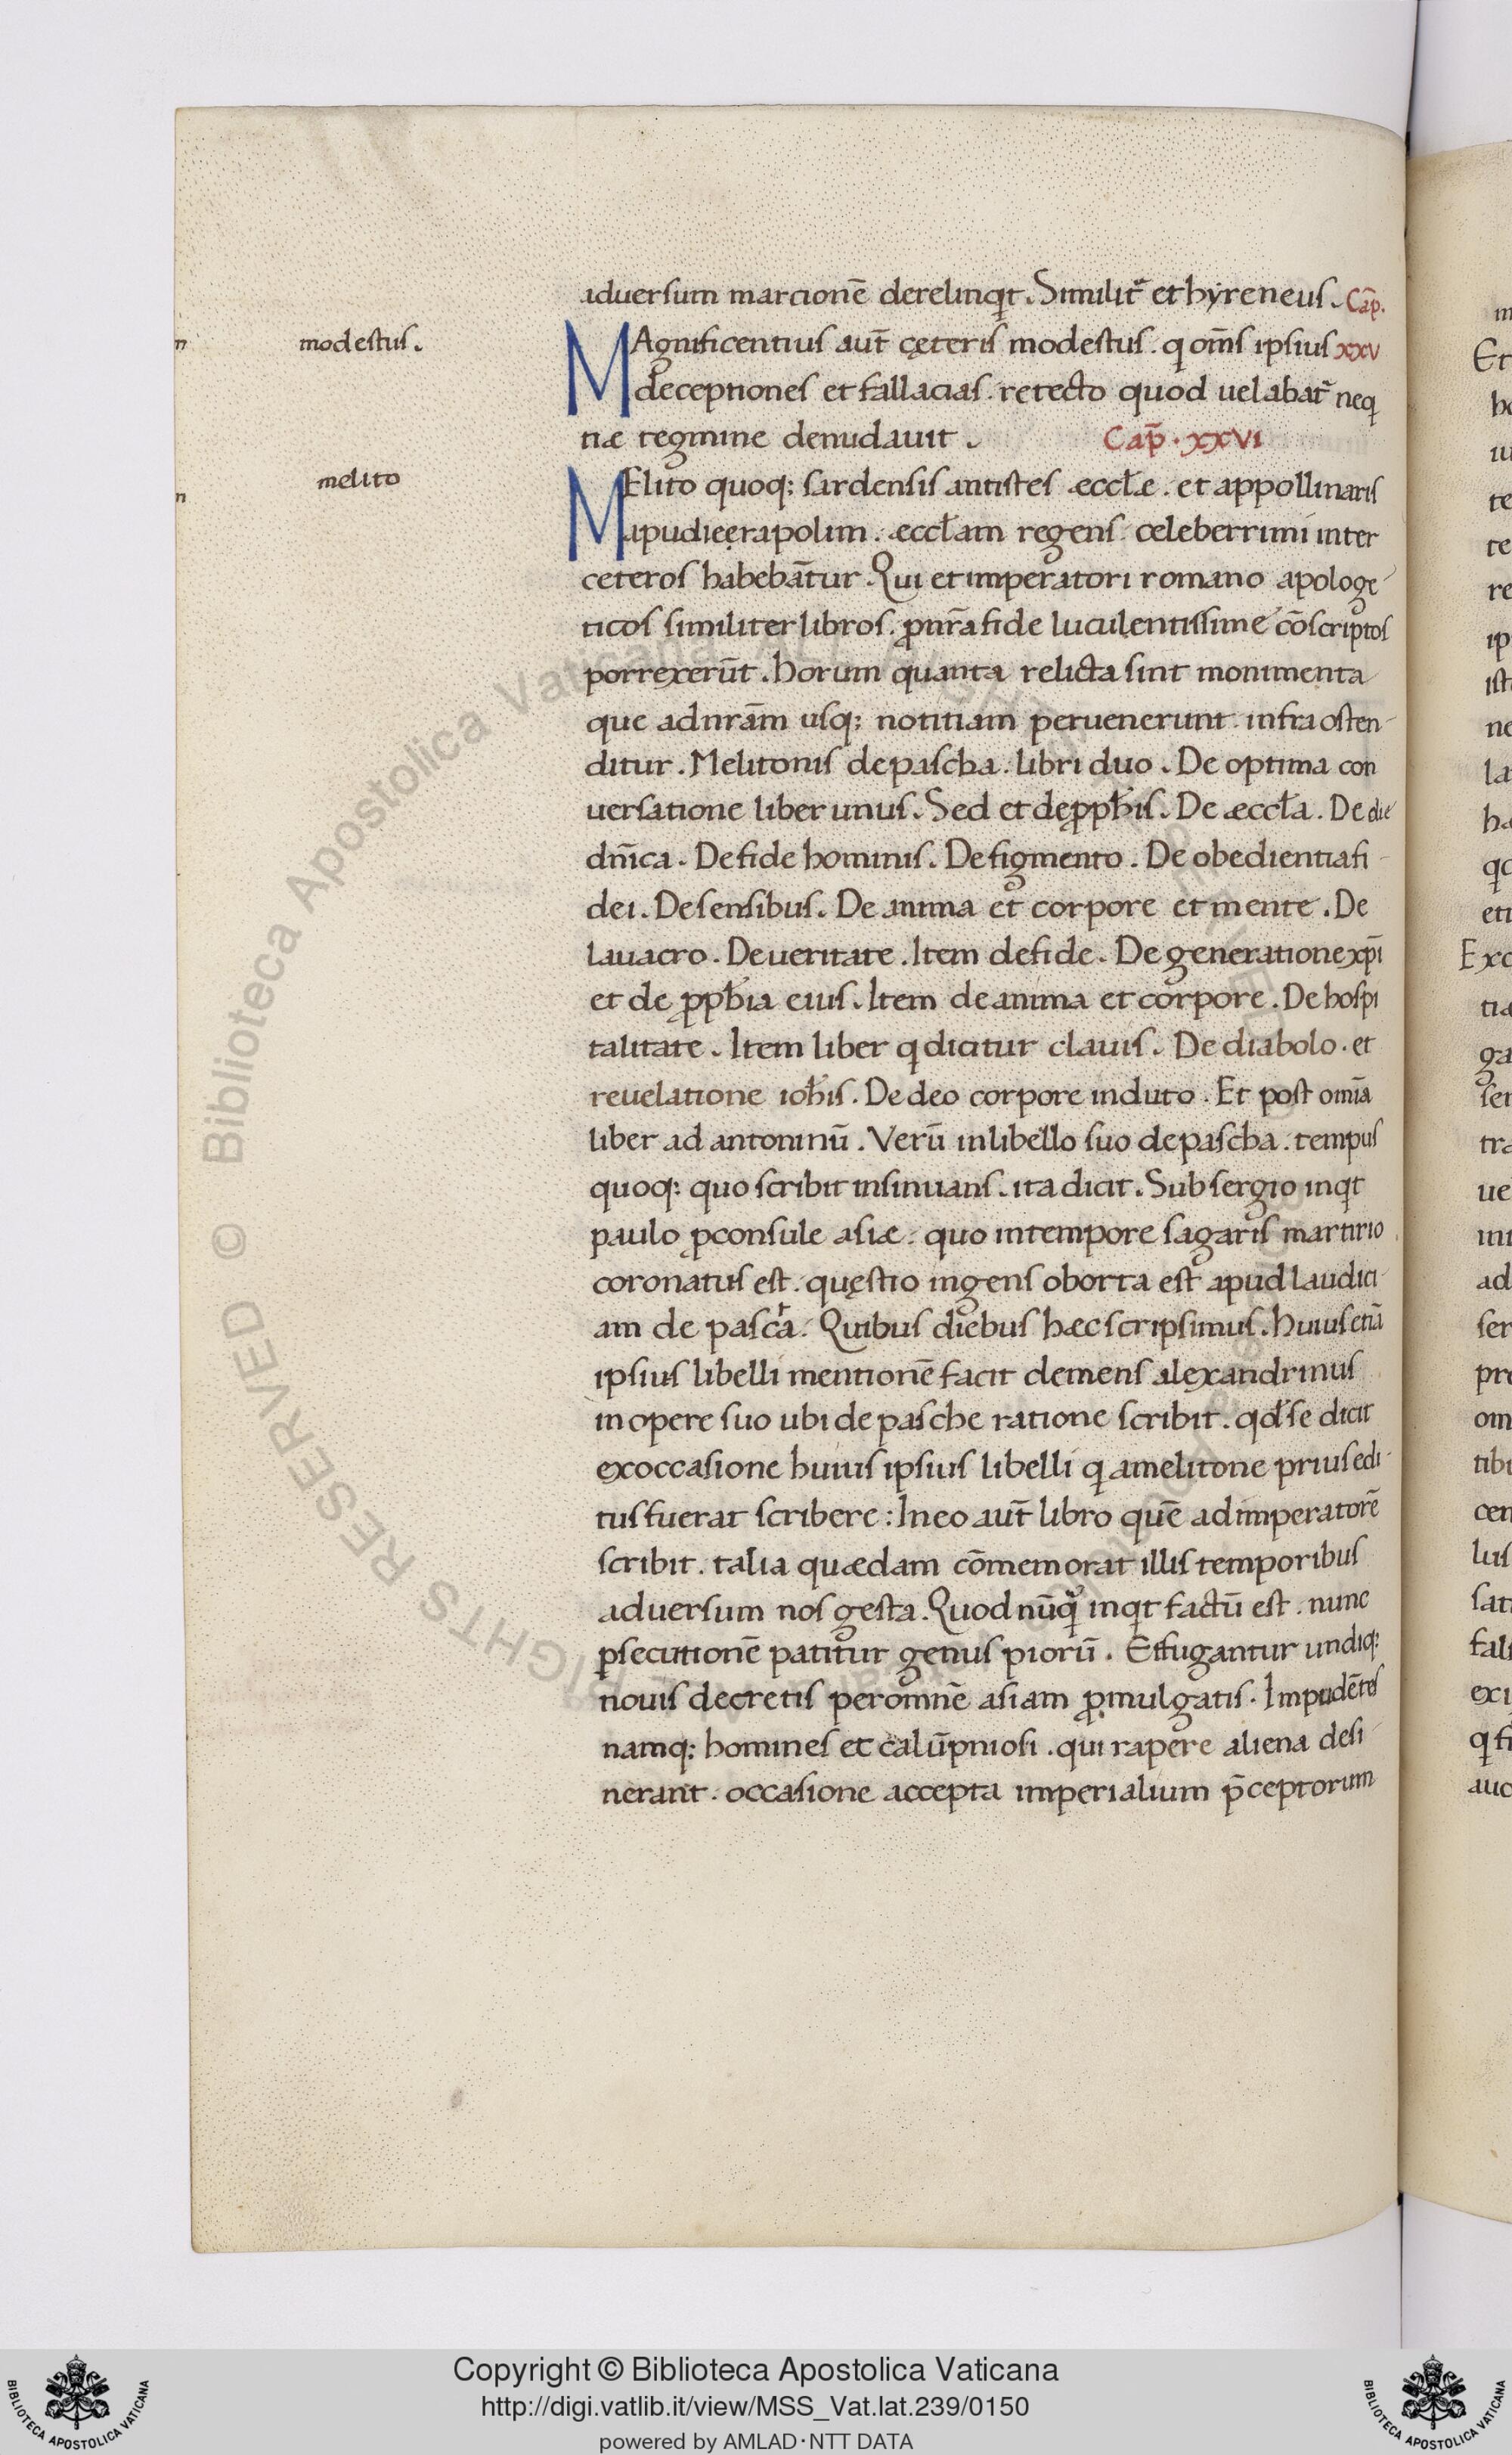 aduersum marcionē derelinqt. Similit̄ et hyreneus. Cap̄.
modestus.
MAgnificentius aut̄ cęteris modestus. q om̄s ipsius xxv
deceptiones et fallacias. retecto quod uelabat̄ neq
tiæ tegmine denudauit. Cap̄. xxvi
melito
MElito quoq; sardensis antistes æccłæ. et appollinaris
apud ieęrapolim. æccłam regens celeberrimi inter
ceteros habebāntur. Qui et imperatori romano apologe
ticos similiter libros. pnr̄a fide luculentissime cōscriptos
porrexerūt. horum quanta relicta sint monimenta
que ad nrām usq; notitiam peruenerunt infra osten-
ditur. Melitonis de pascha. libri duo. De optima con
uersatione liber unus. Sed et de ppħis. De æccła. De die
dn̄ica. De fide hominis. De figmento. De obedientia fi-
dei. De sensibus. De anima et corpore et mente. De
lauacro. De ueritate. Item de fide. De generatione xp̄i
et de ppħia eius. Item de anima et corpore. De hospi
talitate. Item liber q dicitur clauis. De diabolo. et
reuelatione ioħis. De deo corpore induto. Et post om̄ia
liber ad antoninū. Verū in libello suo de pascha. tempus
quoq; quo scribit insinuans. ita dicit. Sub sergio inqt
paulo pconsule asiæ. quo in tempore sagaris martirio
coronatus est. quęstio ingens oborta est apud laudici
am de pasca. Quibus diebus hæc scripsimus. huius etiā
ipsius libelli mentionē facit clemens alexandrinus
in opere suo ubi de pasche ratione scribit. qd se dicit
ex occasione huius ipsius libelli q a melitone prius edi-
tus fuerat scribere: In eo aut̄ libro quē ad imperatorē
scribit. talia quædam cōmemorat illis temporibus
aduersum nos gesta. Quod nūq inqt factū est. nunc
psecutionē patitur genus piorū. Effugantur undiq;
nouis decretis per omnē asiam pmulgatis. Impudētes
namq; homines et calūpniosi. qui rapere aliena desi
nerant. occasione accepta imperialium p̄ceptorum
Copyright © Biblioteca Apostolica Vaticana
http://digi.vatlib.it/view/MSS_Vat.lat.239/0150
powered by AMLAD·NTT DATA